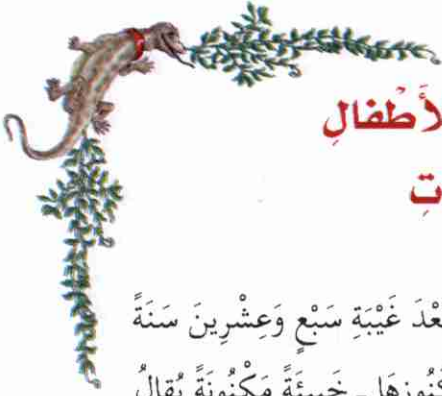 لأَطْفالِ
تِ
بَعْدَ غَيْبَةِ سَبْعٍ وَعِشْرِينَ سَنَةً
خَبِيئَةً مَكْنُونَةً يُقالُ